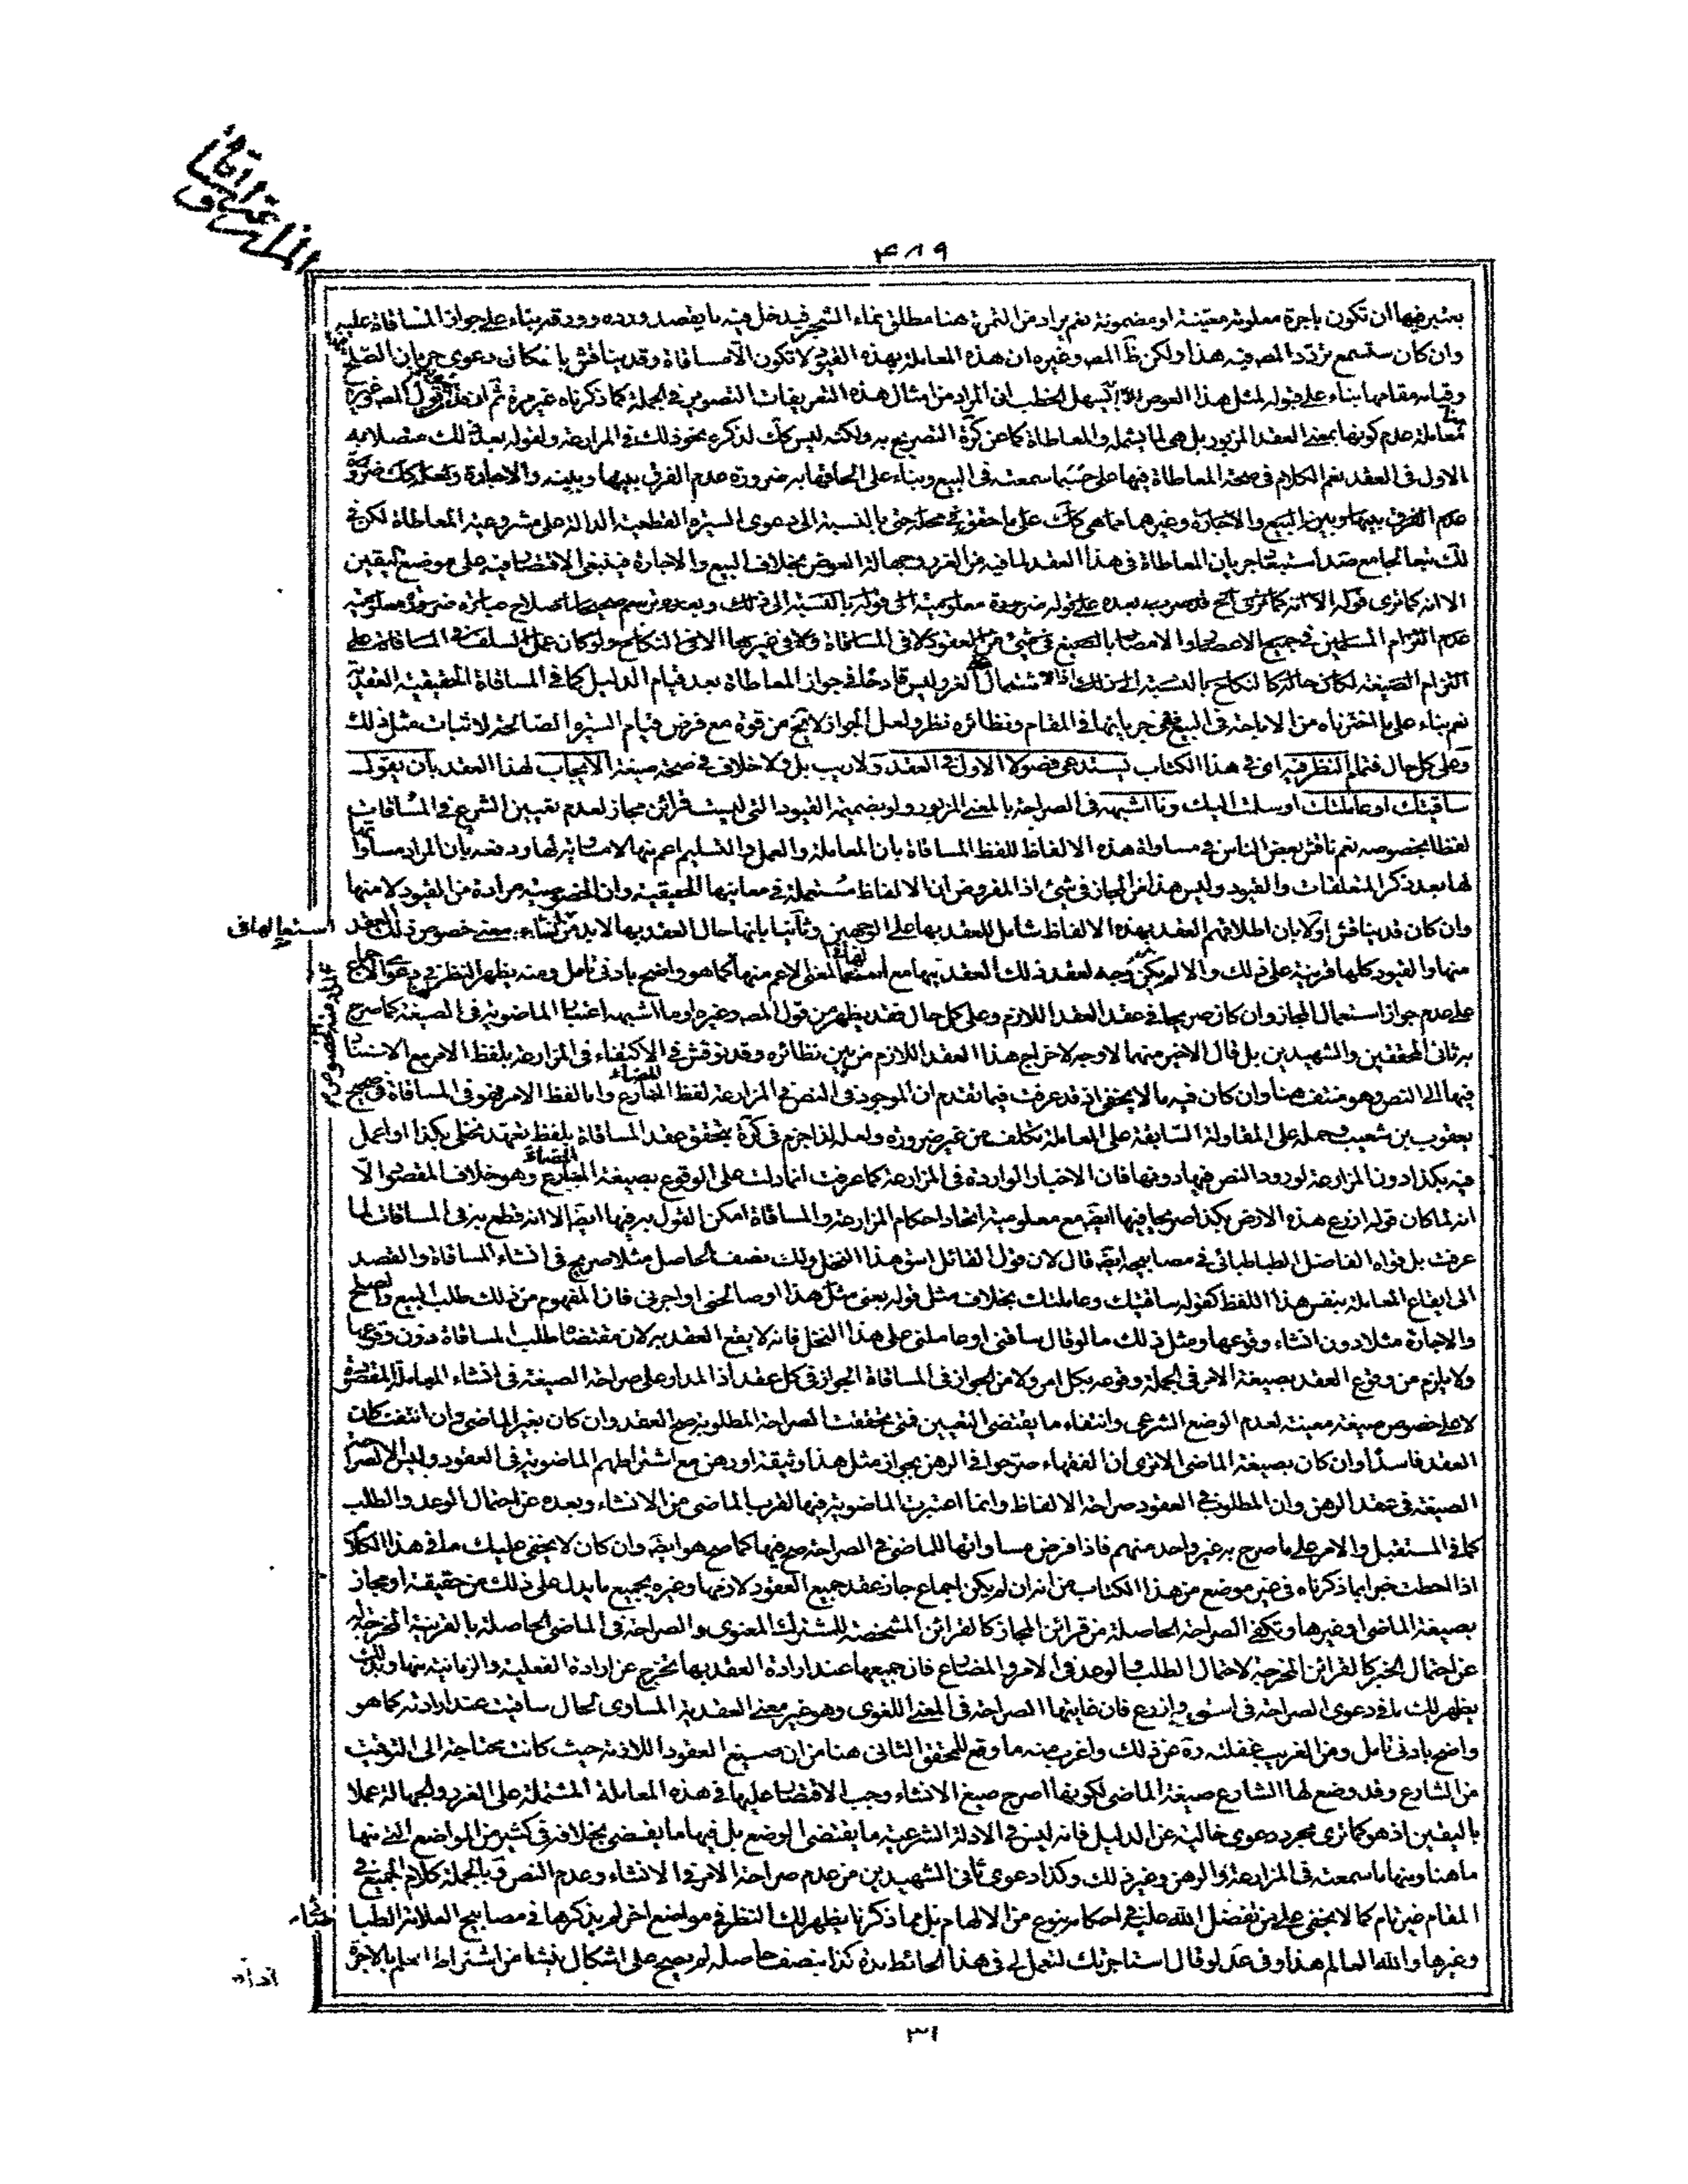 ٤٨٩
يعتبر فيها ان تكون باجرة معلومة معينة او مضمونة نعم يراد من الثمرة هنا مطلق نماء الشجر فيدخل فيه ما يقصد ورده وورقه بناء على جواز المساقاة عليه
وان كان ستسمع تردد المصـ فيه هذا ولكن ظ المصـ وغيره ان هذه المعاملة بهذه القيود لا تكون الا مساقاة وقد يناقش بامكان دعوى جريان الصلح
وقيامه مقامها بناء على قبوله لمثل هذا العوض يسهل الخطب ان المراد من امثال هذه التعريفات التصوير في الجملة كما ذكرناه غير مرة ثم ان قول المصـ وغيره
معاملة عدم كونها بمعنى العقد المزبور بل هي لما يشمله والمعاطاة كما عن كرة التصريح به ولكنه ليس كك لذكره نحو ذلك في المزارعة ولقوله بعد ذلك متصلا به
الاول في العقد نعم الكلام في صحة المعاطاة فيها على حسبما سمعته في البيع وبناء على الحاقها به ضرورة عدم الفرق بينها وبينه والاجارة
عدم الفرق بينها وبين البيع والاجارة وغيرهما مما هي كك على ما حقق في محله حتى بالنسبة الى دعوى السيرة القطعية الدالة على مشروعية المعاطاة لكن في
لك تبعا لجامع صد استبعد جريان المعاطاة في هذا العقد لما فيه من الغرر وجهالة العوض بخلاف البيع والاجارة فينبغي الاقتصار فيه على موضع اليقين
الا انه كما ترى ضرورة معلومية
عدم التزام المسلمين في جميع الاعصار والامصار بالصيغ في شيء من العقود لا في المساقاة ولا في غيرها الا في النكاح ولو كان عمل السلف في المساقاة على
التزام الصيغة لكان حاله كالنكاح بالنسبة الى ذلك اذ اشتمال الغرر ليس قادحا في جواز المعاطاة بعد قيام الدليل كما في المساقاة الحقيقية العقدية
نعم بناء على ما اخترناه من الاباحة في البيع ففي جريانها في المقام ونظائره نظر ولعل الجواز لا يخ من قوة مع فرض قيام السيرة الصالحة لاثبات مثل ذلك
وعلى كل حال فتمام النظر فيه اي في هذا الكتاب يستدعي فصولا الاول في العقد ولا ريب بل ولا خلاف في صحة صيغة الايجاب لهذا العقد بان يقول
ساقيتك او عاملتك او سلمت اليك وما اشبهه في الصراحة بالمعنى المزبور ولو بضميمة القيود التي ليست قرائن مجاز لعدم تعيين الشرع في المساقات
لفظا بخصوصه نعم ناقش بعض الناس في مساواة هذه الالفاظ للفظ المساقاة بان المعاملة والعمل والتسليم اعم منها ودفعه بان المراد مساواتها
لها بعد ذكر المتعلقات والقيود وليس هذا من المجاز في شيء اذ المفروض ان الالفاظ مستعملة في معانيها الحقيقية وان الخصوصية مرادة من القيود لا منها
وان كان قد يناقش اولا بان اطلاقهم العقد بهذه الالفاظ شامل للعقد بها على الوجهين وثانيا بانها حال العقد بها لا بد من انشاء معنى خصوص ذلك العقد
استعمالها في
المراد منه الخصوص
منها والقيود كلها قرينة على ذلك والا لم يكن وجه لعقدية ذلك العقد بها مع استعمالها في المعنى الاعم منها كما هو واضح بادنى تامل ومنه يظهر النظر في دعوى الاجماع
على عدم جواز استعمال المجاز وان كان صريحا في عقد العقد اللازم وعلى كل حال فقد يظهر من قول المصـ وغيره او ما اشبهه اعتبار الماضوية في الصيغة كما صرح
به ثاني المحققين والشهيدين بل قال الاخير منهما لا وجه لاخراج هذا العقد اللازم من بين نظائره وقد نوقش في الاكتفاء في المزارعة بلفظ الامر مع الاستناد
فيها الى النص وهو منتف هنا وان كان فيه ما لا يخفى اذ قد عرفت فيما تقدم ان الموجود في النص في المزارعة لفظ المضارع واما لفظ الامر فهو في المساقاة في صحيح
يعقوب بن شعيب وحمله على المقاولة السابقة على المعاملة تكلف من غير ضرورة ولعله لذا جزم في كرة بتحقق عقد المساقاة بلفظ تعهد نخلي بكذا او اعمل
فيه بكذا دون المزارعة لورود النص فيها دونها فان الاخبار الواردة في المزارعة كما عرفت انما دلت على الوقوع بصيغة المضارع وهو خلاف المقصود الا
انه لما كان قوله ازرع هذه الارض بكذا صريحا فيها ايضا مع معلومية اتحاد احكام المزارعة والمساقاة امكن القول به فيها ايضا الا انه قطع به في المساقات لما
عرفت بل قواه الفاضل الطباطبائي في مصابيحه ايضا قال لان قول القائل اسق هذا النخل ولك نصف الحاصل مثلا صريح في انشاء المساقاة والقصد
الى ايقاع المعاملة بنفس هذا اللفظ كقوله ساقيتك وعاملتك بخلاف مثل قوله بعني مثل هذا او صالحني او اجرني فان المفهوم من ذلك طلب البيع والصلح
والاجارة مثلا دون انشاء وقوعها ومثل ذلك ما لو قال ساقني او عاملني على هذا النخل فانه لا يقع العقد به لان مقتضاه طلب المساقاة دون وقوعها
ولا يلزم من وقوع العقد بصيغة الامر في الجملة وقوعه بكل امر ولا من الجواز في المساقاة الجواز في كل عقد اذ المدار على صراحة الصيغة في انشاء المعاملة المقصودة
لا على خصوص صيغة معينة لعدم الوضع الشرعي وانتفاء ما يقتضي التعيين فمتى تحققت الصراحة المطلوبة صح العقد وان كان بغير الماضي وان انتفت كان
العقد فاسدا وان كان بصيغة الماضي الا ترى ان الفقهاء صرحوا في الرهن بجواز مثل هذا وثيقة او رهن مع اشتراطهم الماضوية في العقود وليس الا لصراحة
الصيغة في عقد الرهن وان المطلوب في العقود صراحة الالفاظ وانما اعتبرت الماضوية فيها لقرب الماضي من الانشاء وبعده عن احتمال الوعد والطلب
كما في المستقبل والامر على ما صرح به غير واحد منهم فاذا فرض مساواتها للماضي في الصراحة صح فيها كما صح هو ايضا وان كان لا يخفى عليك ما في هذا الكلام
اذا احطت خبرا بما ذكرناه في غير موضع من هذا الكتاب من انه ان لم يكن اجماع جاز عقد جميع العقود لازمها وغيره بجميع ما يدل على ذلك من حقيقة او مجاز
بصيغة الماضي او غيرها وتكفي الصراحة الحاصلة من قرائن المجاز كالقرائن المشخصة للمشترك المعنوي والصراحة في الماضي الحاصلة بالقرينة المخرجة له
عن احتمال الخبر كالقرائن المخرجة لاحتمال الطلب والوعد في الامر والمضارع فان جميعها عند ارادة العقد بها تخرج عن ارادة الفعلية والزمانية منها وبذلك
يظهر لك ما في دعوى الصراحة في اسق وازرع فان غايتها الصراحة في المعنى اللغوي وهو غير معنى العقدية المساوي لحال ساقيت عند ارادته كما هو
واضح بادنى تامل ومن الغريب غفلته ره عن ذلك واغرب منه ما وقع للمحقق الثاني هنا من ان صيغ العقود اللازمة حيث كانت محتاجة الى التوقيت
من الشارع وقد وضع لها الشارع صيغة الماضي لكونها اصرح صيغ الانشاء وجب الاقتصار عليها في هذه المعاملة المشتملة على الغرر والجهالة عملا
باليقين اذ هو كما ترى مجرد دعوى خالية عن الدليل فانه ليس في الادلة الشرعية ما يقتضي الوضع بل فيها ما يقضي بخلافه في كثير من المواضع التي منها
ما هنا ومنها ما سمعته في المزارعة والرهن وغير ذلك وكذا دعوى ثاني الشهيدين من عدم صراحة الامر في الانشاء وعدم النص وبالجملة كلام الجميع في
المقام غير تام كما لا يخفى على من تفضل الله عليه في احكامه بنوع من الالهام بل مما ذكرنا يظهر لك النظر في مواضع اخر لم يذكرها في مصابيح العلامة الطباطبائي
وغيرها والله العالم هذا وفي عد لو قال استاجرتك لتعمل لي في هذا الحائط مدة كذا بنصف حاصله لم يصح على اشكال ينشا من اشتراط العلم بالاجرة
٣١